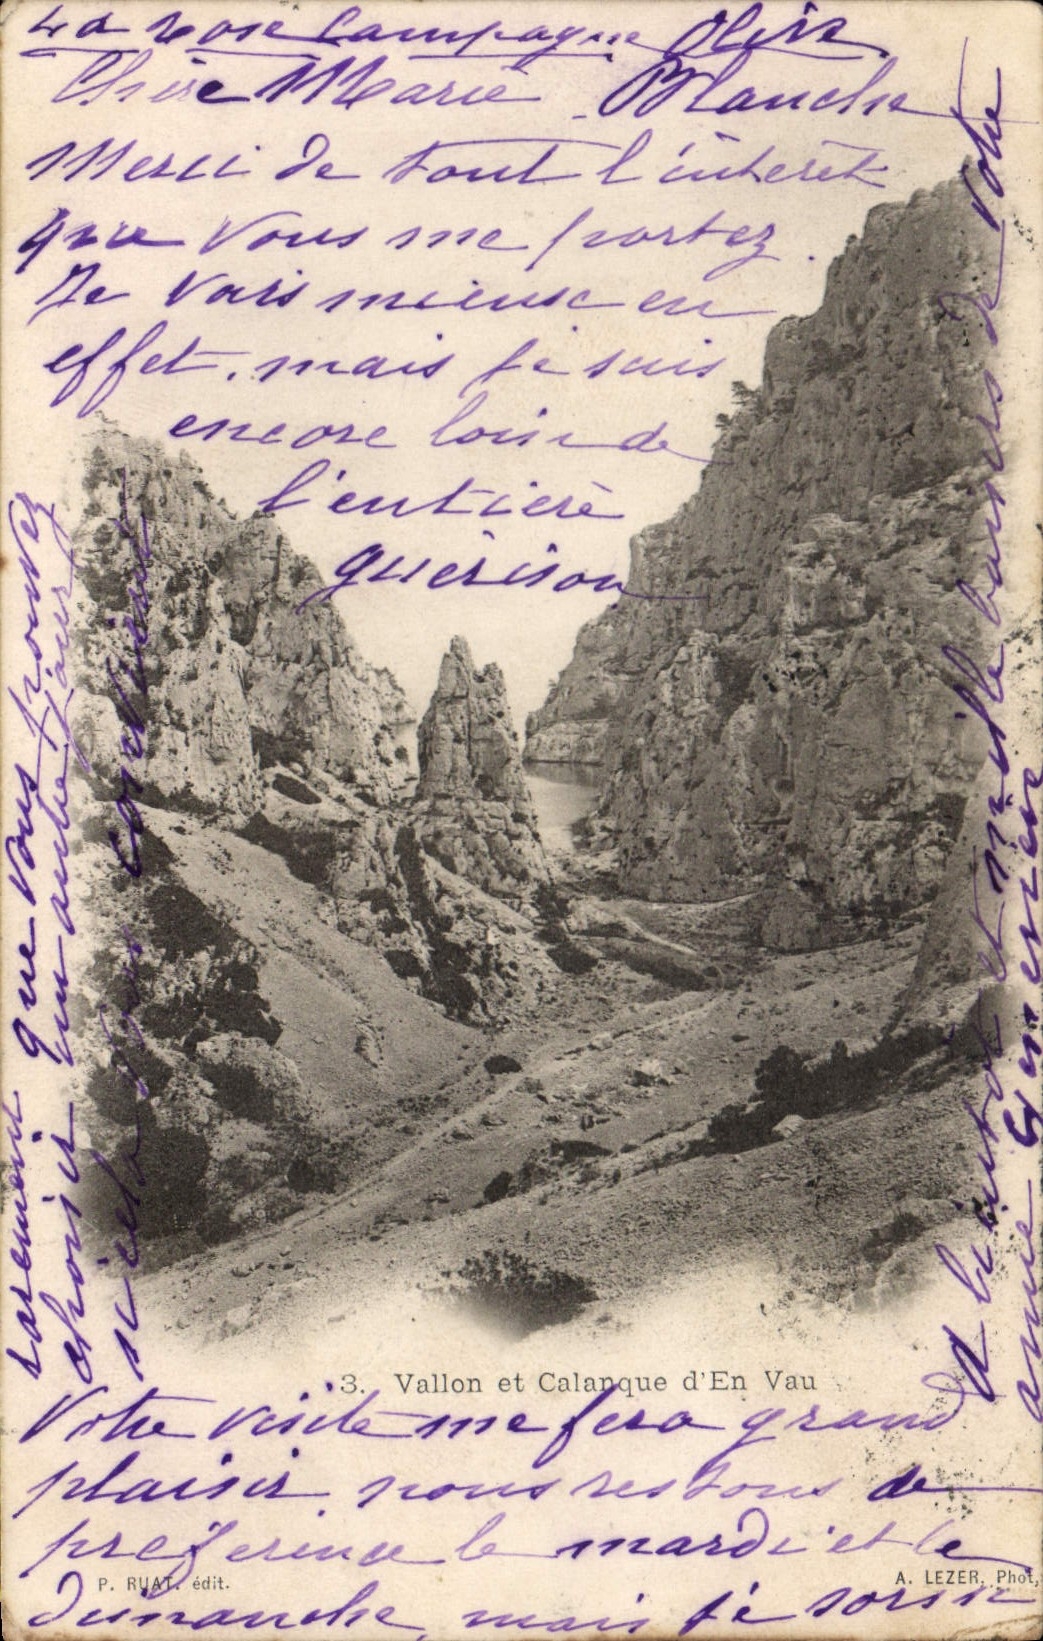 La Rose Campagne Olive
Chère Marie Blanche
Merci de tout l'intérêt
que vous me portez
Je vais mieux en
effet, mais je suis
encore loin de
l'entière
guérison
3. Vallon et Calanque d'En Vau
Votre visite me fera grand
plaisir, nous restons de
préférence le mardi et le
P. RUAT. édit.
A. LEZER, Phot.
dimanche, mais je sors si
rarement que vous pouvez
choisir un autre jour
si cela vous convient
A bientôt et mille baisers de votre
amie